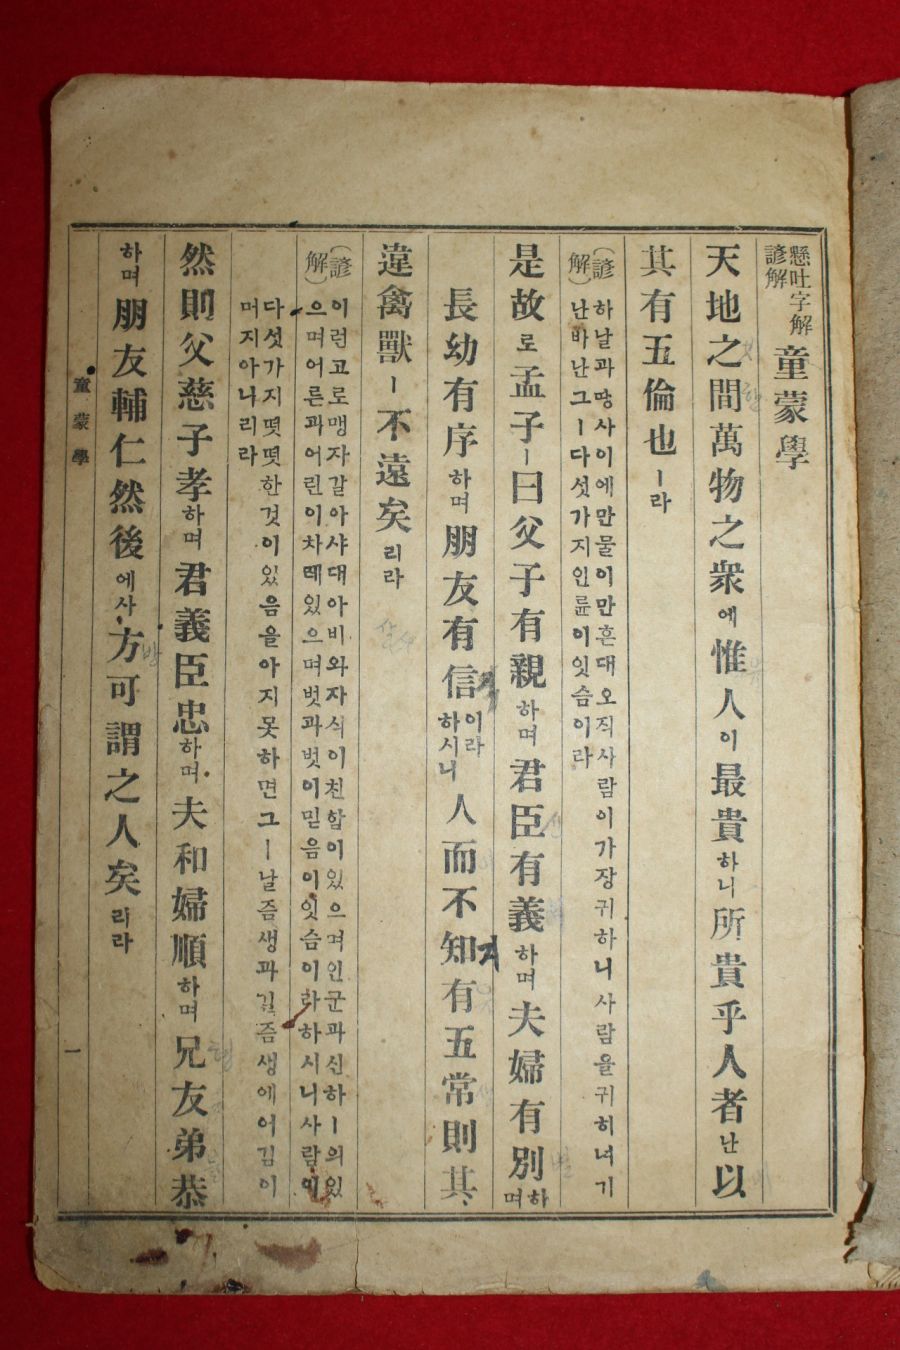 懸吐字解
諺解
童蒙學
天地之間萬物之衆에惟人이最貴하니所貴乎人者난以
其有五倫也ㅣ라
(諺解)하날과땅사이에만물이만흔대오직사람이가장귀하니사람을귀히녀기
난바난그ㅣ다섯가지인륜이잇슴이라
是故로孟子ㅣ曰父子有親하며君臣有義하며夫婦有別하며
長幼有序하며朋友有信이라하시니人而不知有五常則其
違禽獸ㅣ不遠矣리라
(諺解)이런고로맹자갈아샤대아비와자식이친함이있으며인군과신하ㅣ의있
으며어른과어린이차례있으며벗과벗이믿음이잇슴이라하시니사람이
다섯가지떳떳한것이있음을아지못하면그ㅣ날즘생과길즘생에어김이
머지아니리라
然則父慈子孝하며君義臣忠하며夫和婦順하며兄友弟恭
하며朋友輔仁然後에사方可謂之人矣리라
童蒙學
一